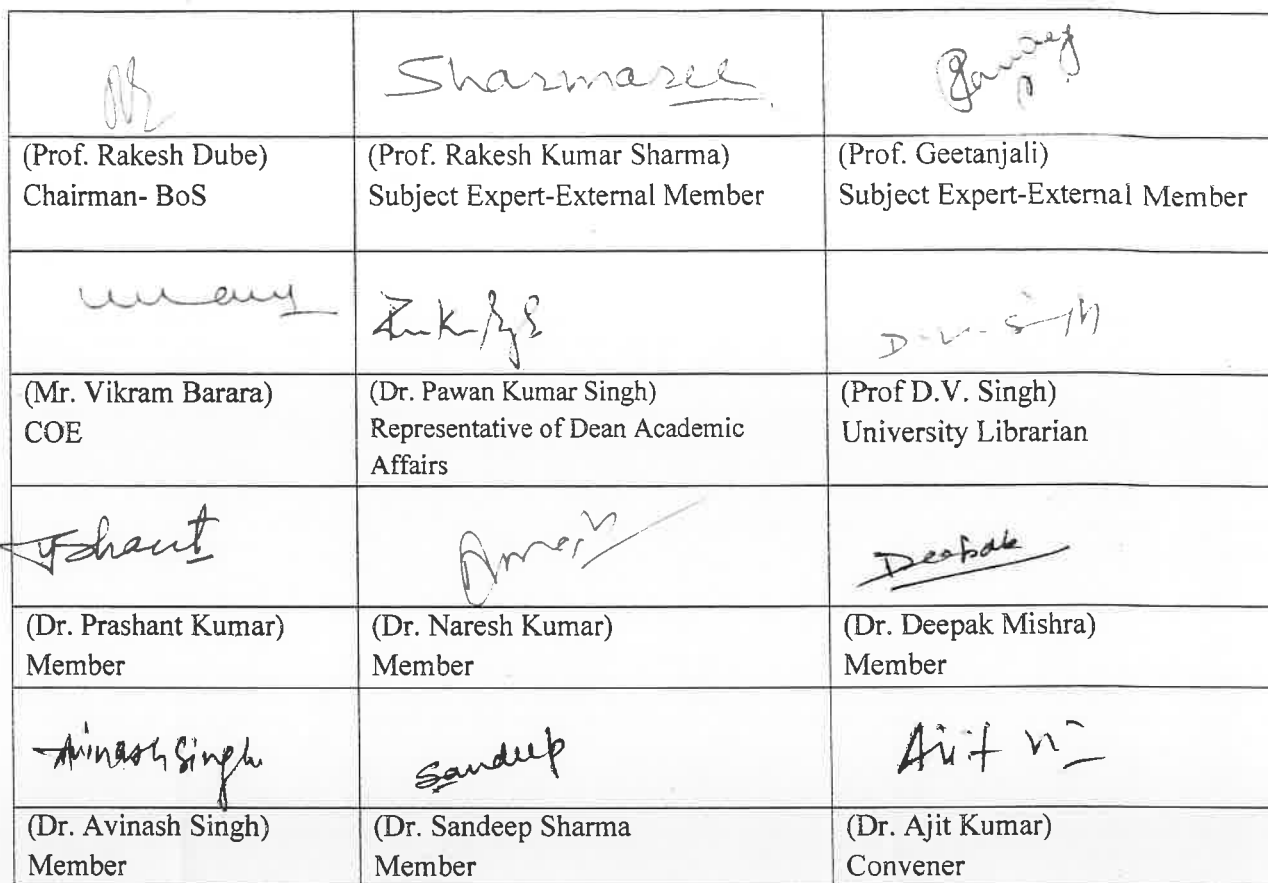 Sharmaree
(Prof. Rakesh Dube)
Chairman- BoS
(Prof. Rakesh Kumar Sharma)
Subject Expert-External Member
(Prof. Geetanjali)
Subject Expert-External Member
D.V. Singh
(Mr. Vikram Barara)
COE
(Dr. Pawan Kumar Singh)
Representative of Dean Academic
Affairs
(Prof D.V. Singh)
University Librarian
Deepak
(Dr. Prashant Kumar)
Member
(Dr. Naresh Kumar)
Member
(Dr. Deepak Mishra)
Member
Avinash Singh
Sandeep
(Dr. Avinash Singh)
Member
(Dr. Sandeep Sharma
Member
(Dr. Ajit Kumar)
Convener